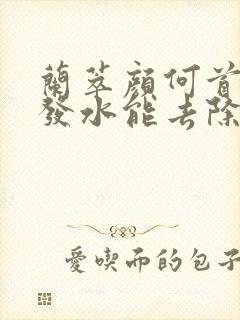 蘭萃顏何首
發水能去除
愛喫而的包子